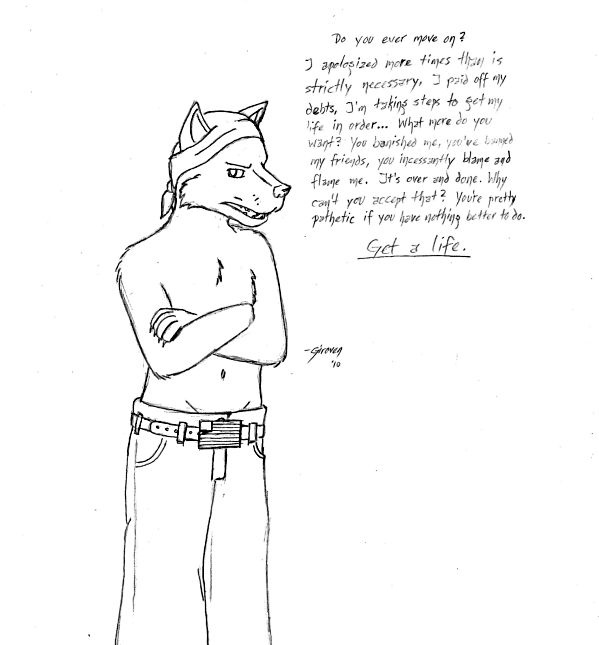 Do you ever move on?
I apologized more times than is
strictly necessary, I paid off my
debts, I'm taking steps to get my
life in order... What more do you
want? You banished me, you've banned
my friends, you incessantly blame and
flame me. It's over and done. Why
can't you accept that? You're pretty
pathetic if you have nothing better to do.
Get a life.
-Giroven
'10